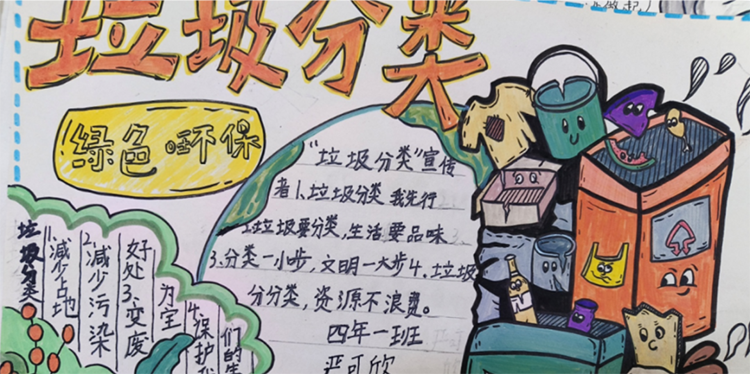 做起)
垃圾分类
绿色环保
"垃圾分类"宣传
者1、垃圾分类,我先行
2垃圾要分类,生活要品味
3.分类一小步,文明一大步4、垃圾
分分类,资源不浪费。
四年一班
严可欣
垃圾分类
1.减少占地
2.减少污染
好处3、变废
为宝
4.保护
们的